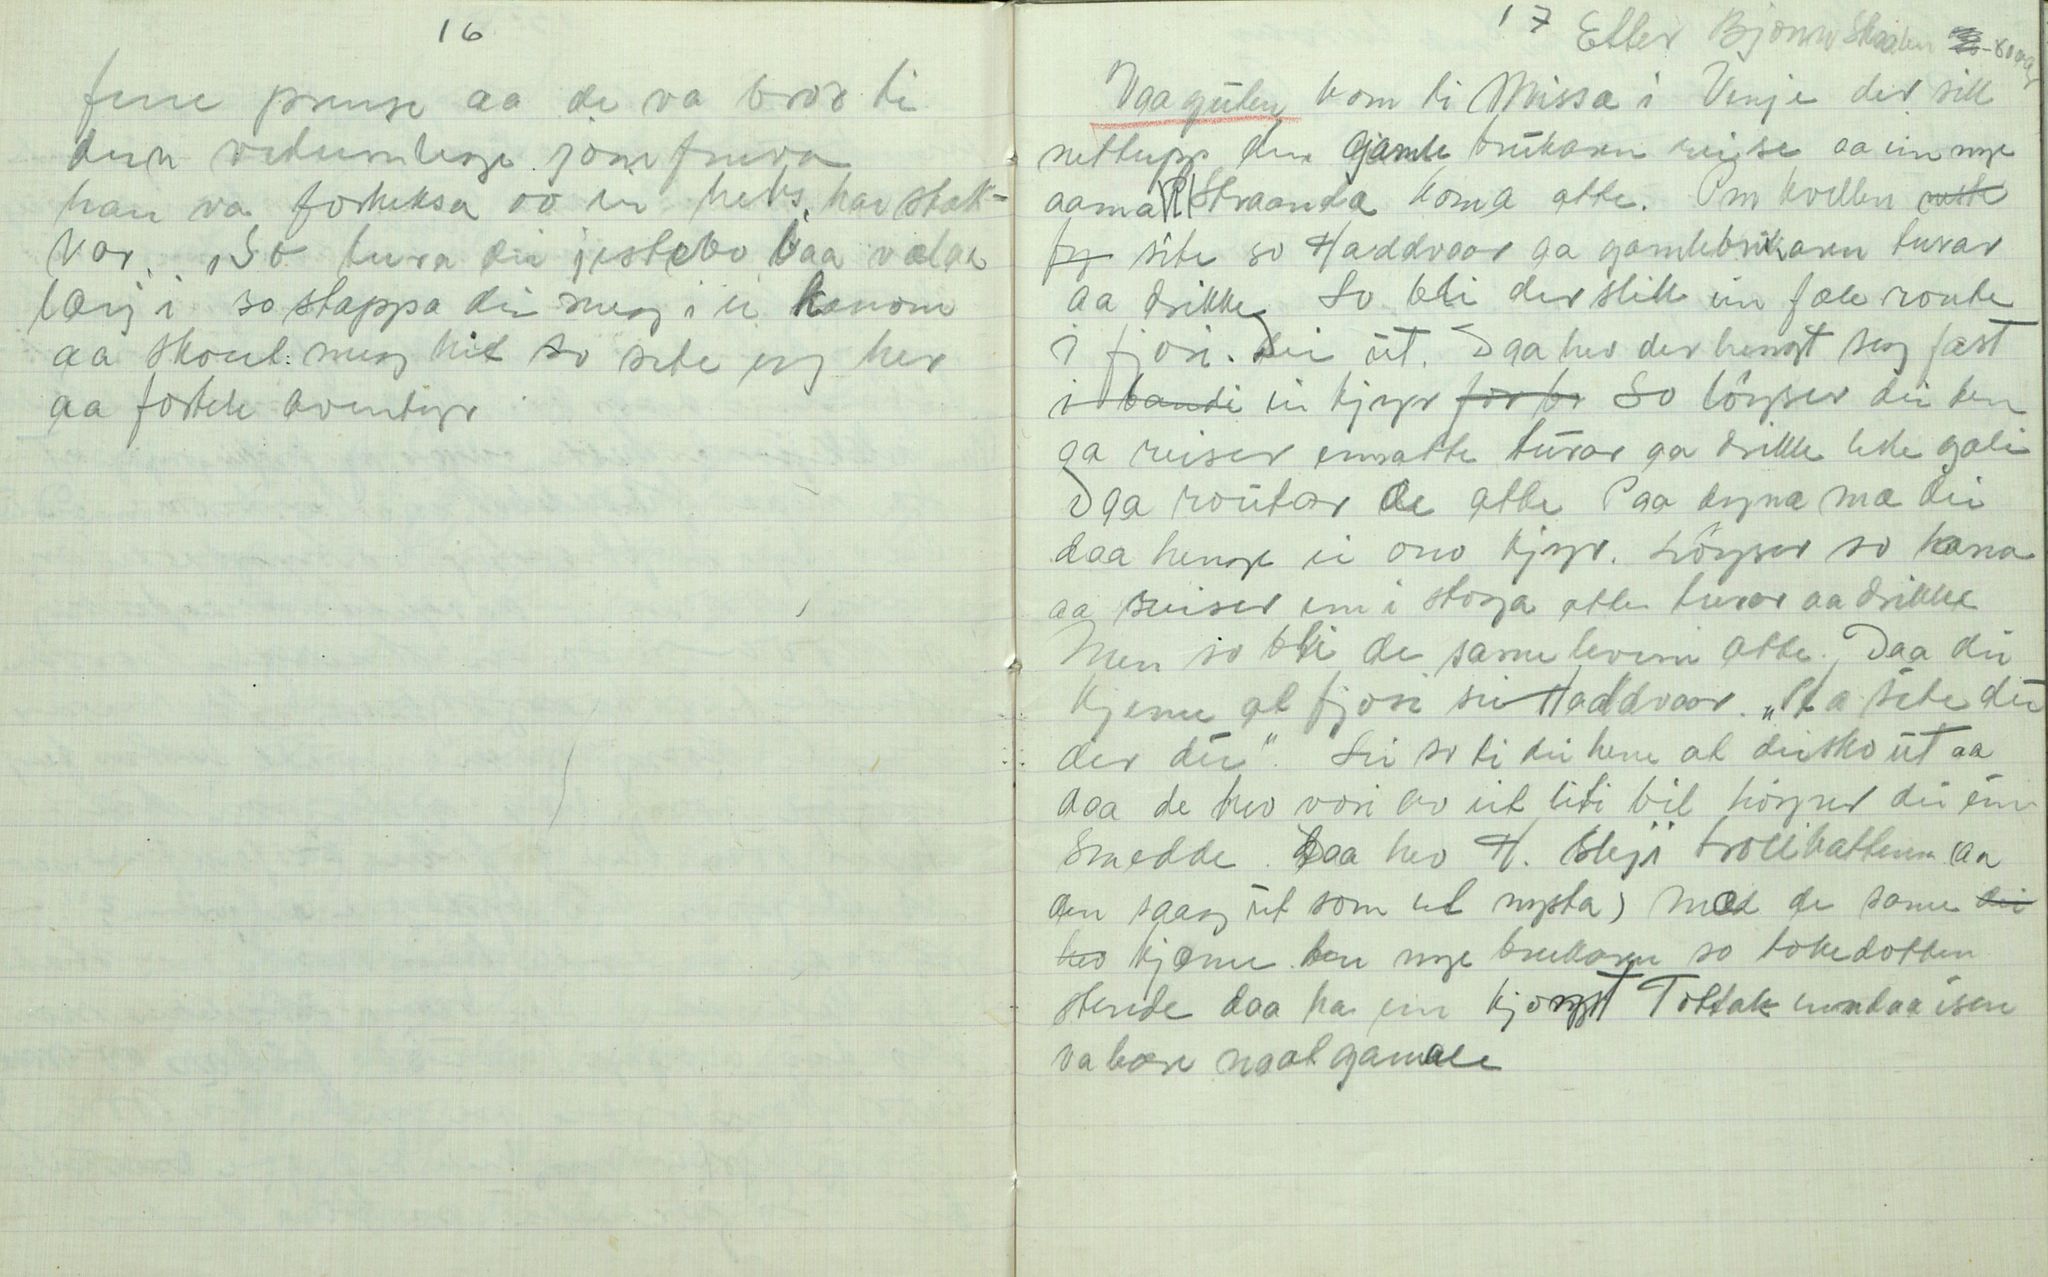 16
fine prense aa de va bror ti
denn vedunlege jomfruva
han va forheksa oo ei heks, han stak-
kar. So tura dei jestebo baa vel aa
leng i so stappa dei meg i ei kanom
aa skout meg hit so site eg her
aa fortele eventyr
17 Etter Bjønn
Vaaguten kom ti Missa i Vinje der sill
nettupp den gamle brukaren reise aa ein nye
aama Straanda koma atte. Om kvellen
site so Haddvoor aa gamlebrukaren turar
aa drikke. So bli der slik ein fæle route
i fjosi. Dei ut. Daa hev der hengt seg fast
i bandi ei kjyr for So löyser dei hen
aa reiser innatte turar aa drikke like gali
Daa routar de atte Paa dyna mæ dei
daa henge ei ono kjyr. Löyser so hona
aa reiser inn i stoga atte turar aa drikke
Men so bli de same leveni atte. Daa dei
kjeme at fjosi sie Haddvoor. "Ja site du
der du". Sie so ti dei hine at dei sko ut aa
daa de hev vori ao eit liti bil höyrer dei ein
Smedde. Daa hev H. sleji trollkattenn (aa
den saag ut som eit nysta) Med de same dei
hev kjeme den nye brukaren so tokedotten
stende daa ha ein kjoyrt Tottak enndaa isen
va bare naat gamale